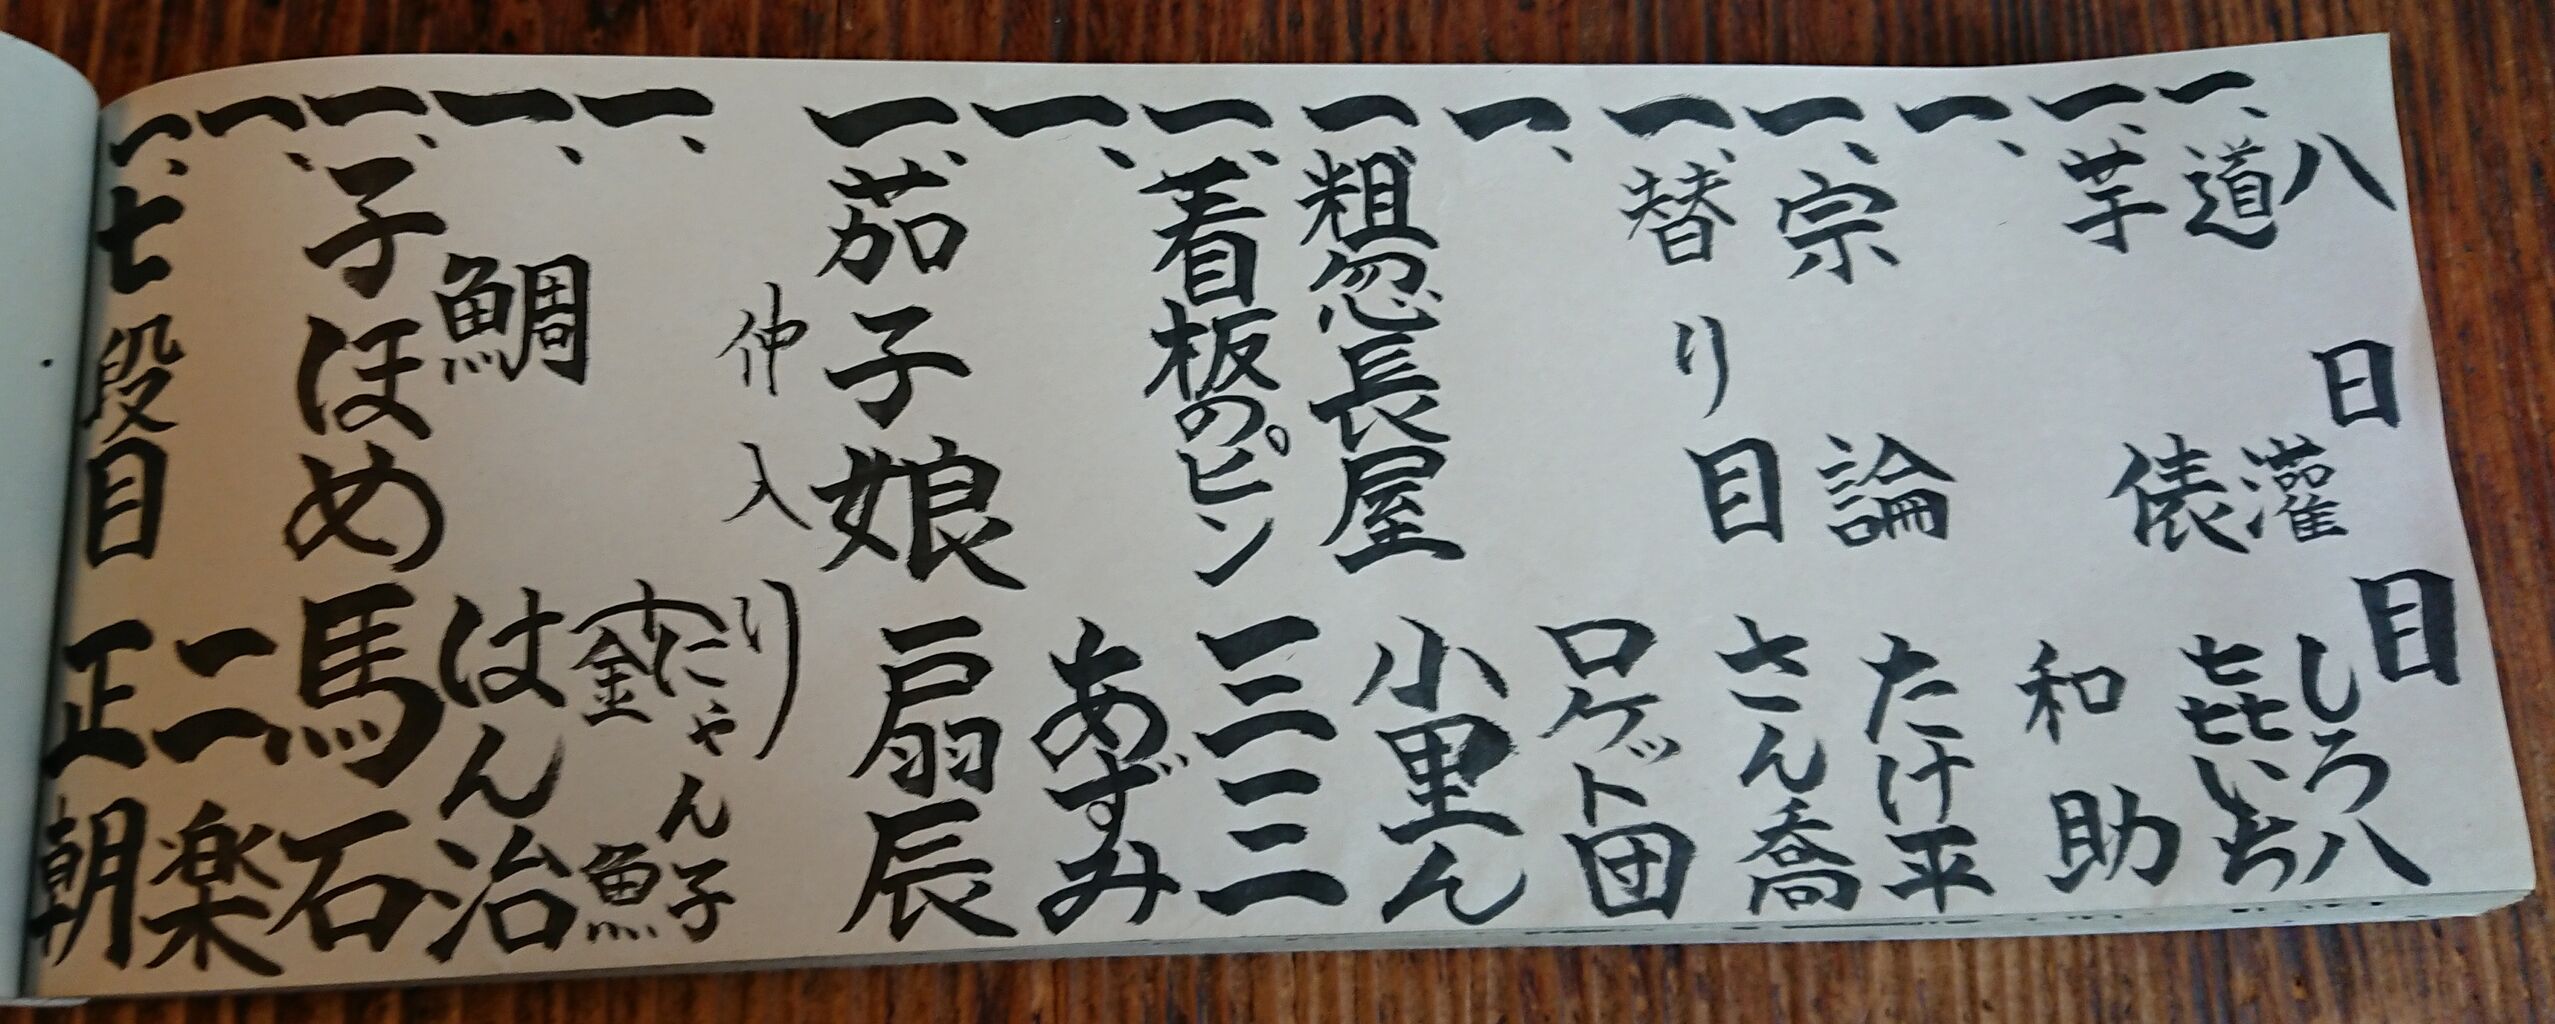 八日目
一、道灌 しろ八
一、芋俵 㐂いち
一、 和助
一、宗論 たけ平
一、替り目 さん喬
一、 ロケット団
一、粗忽長屋 小里ん
一、看板のピン 三三
一、 あずみ
一、茄子娘 扇辰
仲入り
一、 にゃん子 金魚
一、鯛 はん治
一、子ほめ 馬石
一、 二楽
一、七段目 正朝